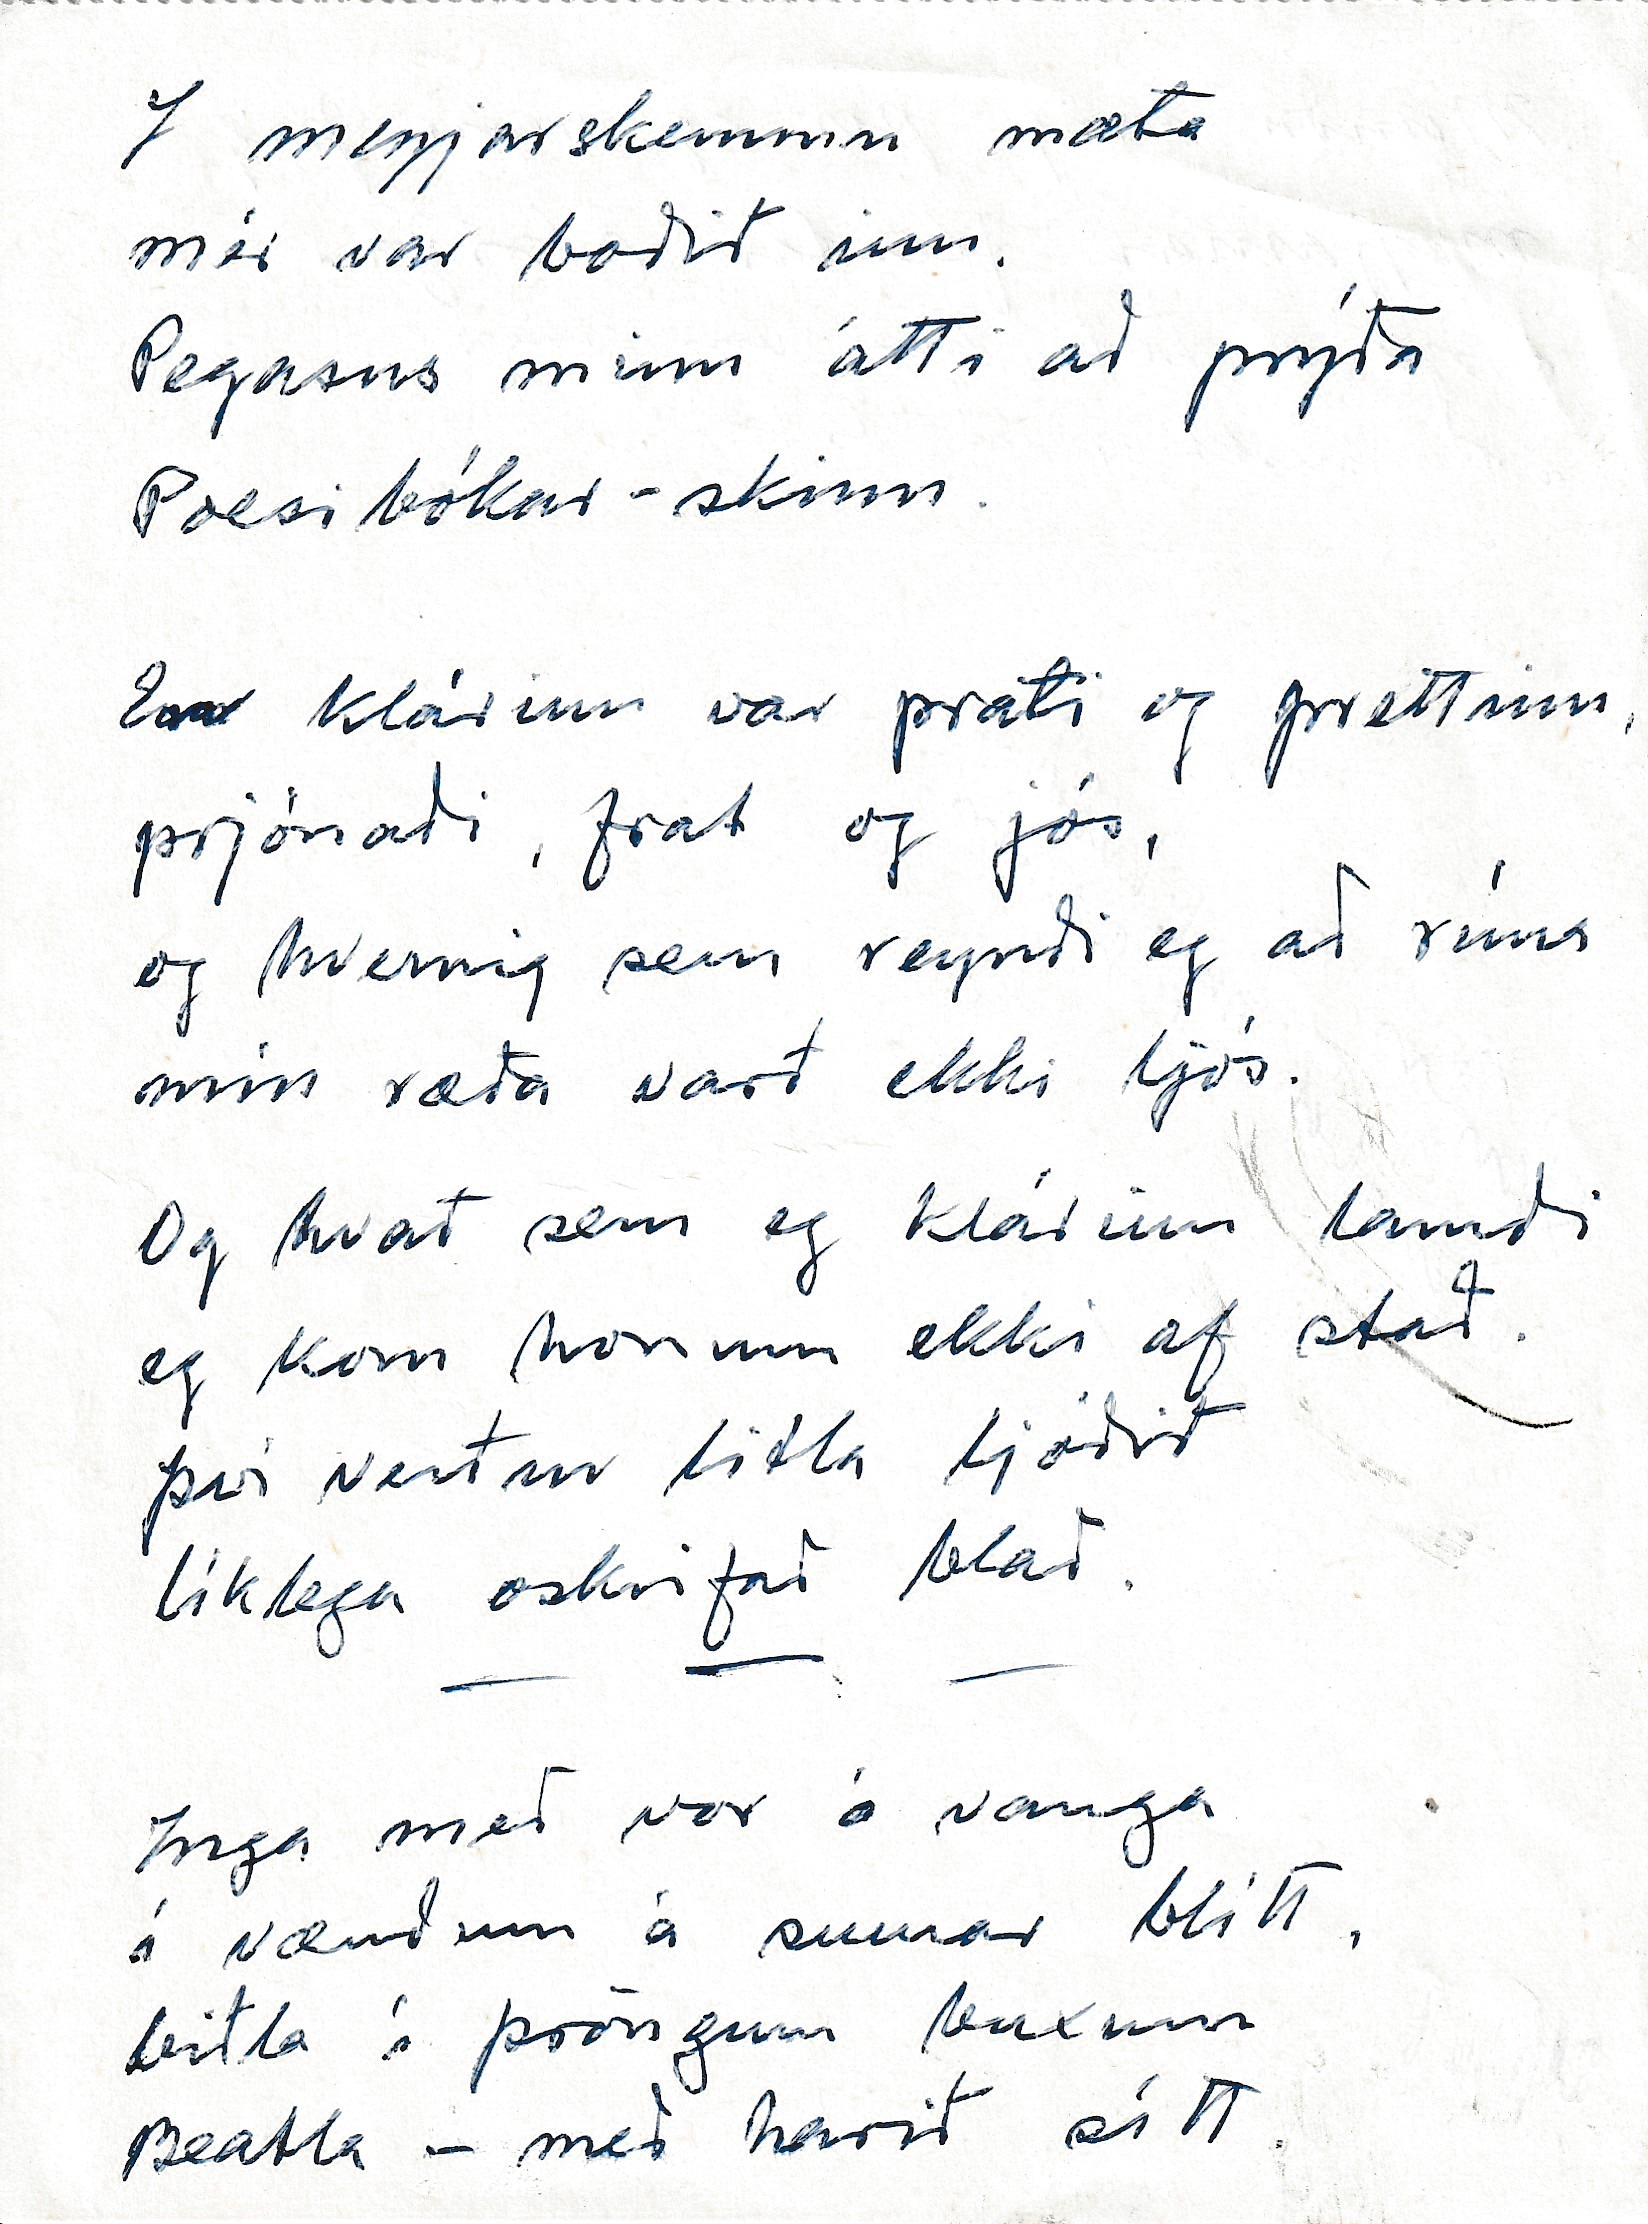 Í meyjarskemmu mæta
mér var boðið inn.
Pegasus minn átti að prýða
Poesibókar-skinn.
En klárinn var þrár og prettinn,
prjónaði, frat og jós,
og hvernig sem reyndi eg að ríma
mín ræða varð ekki ljós.
Og hvað sem eg klárinn lamdi
eg kom honum ekki af stað.
því verður litla ljóðið
líklega oskrifað blað.
— — —
Inga með vor á vanga
á vændum á sumar blítt,
bítla í þröngum buxum
Beatla - með harið sítt.